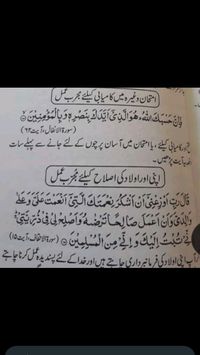 امتحان وغیرہ میں کامیابی کیلئے مجرب عمل
فَإِنَّ حَسْبَكَ اللّٰهُ، هُوَ الَّذِيْٓ اَيَّدَكَ بِنَصْرِهٖ وَبِالْمُؤْمِنِيْنَ
(سورۃ الانفال، آیت ۶۲)
کامیابی کیلئے، یا امتحان میں آسان پرچوں کے لئے جانے سے پہلے سات
آیت پڑھیں۔
اپنی اور اولاد کی اصلاح کیلئے مجرب عمل
قَالَ رَبِّ اَوْزِعْنِيْٓ اَنْ اَشْكُرَ نِعْمَتَكَ الَّتِيْٓ اَنْعَمْتَ عَلَيَّ وَعَلٰى
وَالِدَيَّ وَاَنْ اَعْمَلَ صَالِحًا تَرْضٰهُ وَاَصْلِحْ لِيْ فِيْ ذُرِّيَّتِيْ
اِنِّيْ تُبْتُ اِلَيْكَ وَاِنِّيْ مِنَ الْمُسْلِمِيْنَ (سورۃ الاحقاف، آیت ۱۵)
اپنی اولاد کی فرمانبرداری چاہتے ہیں اور خدا کے لئے پسندیدہ عمل کرنا چاہتے